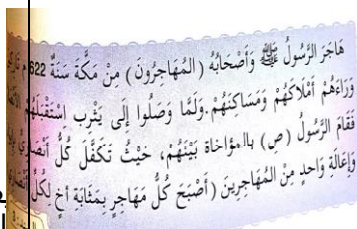 هَاجَرَ الرَّسُولُ ﷺ وَأَصْحَابُهُ (المُهَاجِرُونَ) مِنْ مَكَّةَ سَنَةَ 622م
وَرَاءَهُمْ أَمْلَاكَهُمْ وَمَسَاكِنَهُمْ. وَلَمَّا وَصَلُوا إِلَى يَثْرِب اسْتَقْبَلَهُم
فَقَامَ الرَّسُولُ (ص) بالمؤاخاة بَيْنَهُمْ، حَيْثُ تَكَفَّلَ كُلُّ أَنْصَارِيٍّ
وَإِعَالَةِ وَاحِدٍ مِنَ المُهَاجِرِينَ (أَصْبَحَ كُلُّ مُهَاجِرٍ بِمَثَابَةِ أَخٍ لِكُلِّ